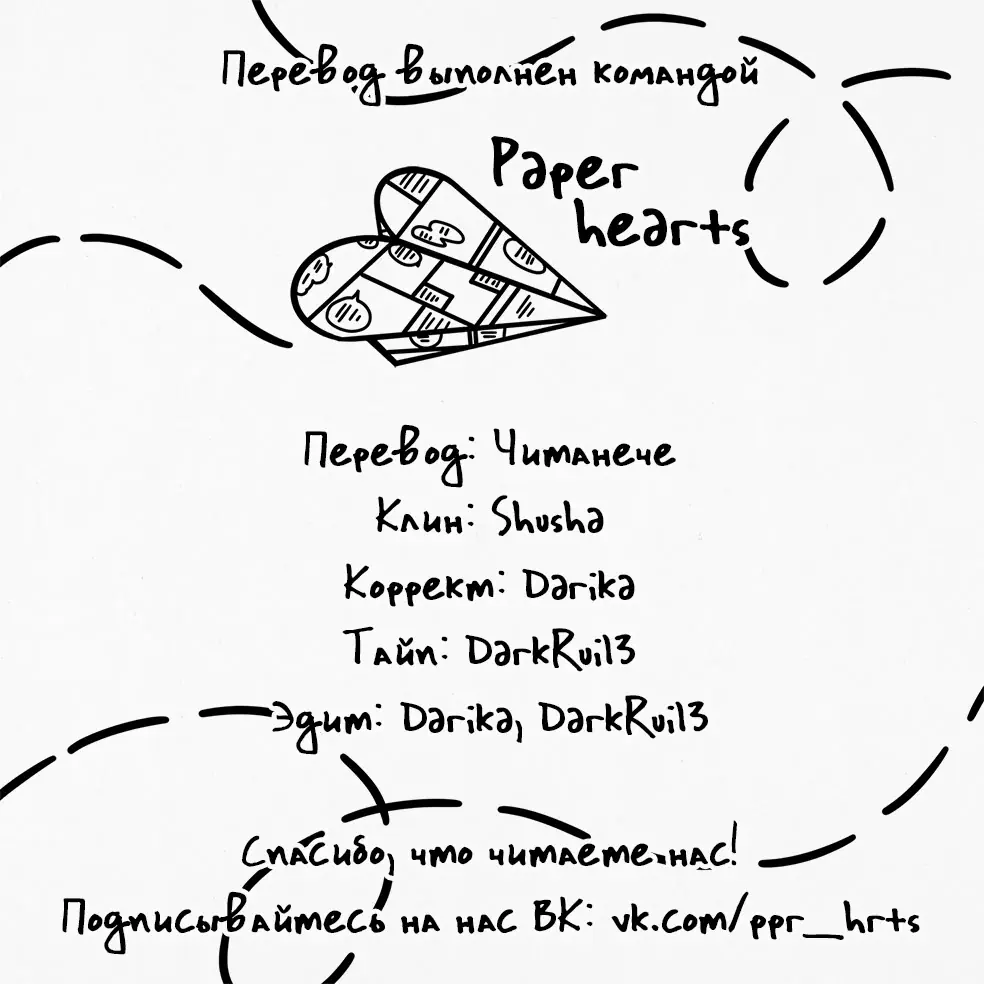 Перевод выполнен командой
Paper
hearts
Перевод: Читанече
Клин: Shusha
Коррект: Darika
Тайп: DarkRui13
Эдит: Darika, DarkRui13
Спасибо, что читаете нас!
Подписывайтесь на нас ВК: vk.com/ppr__hrts